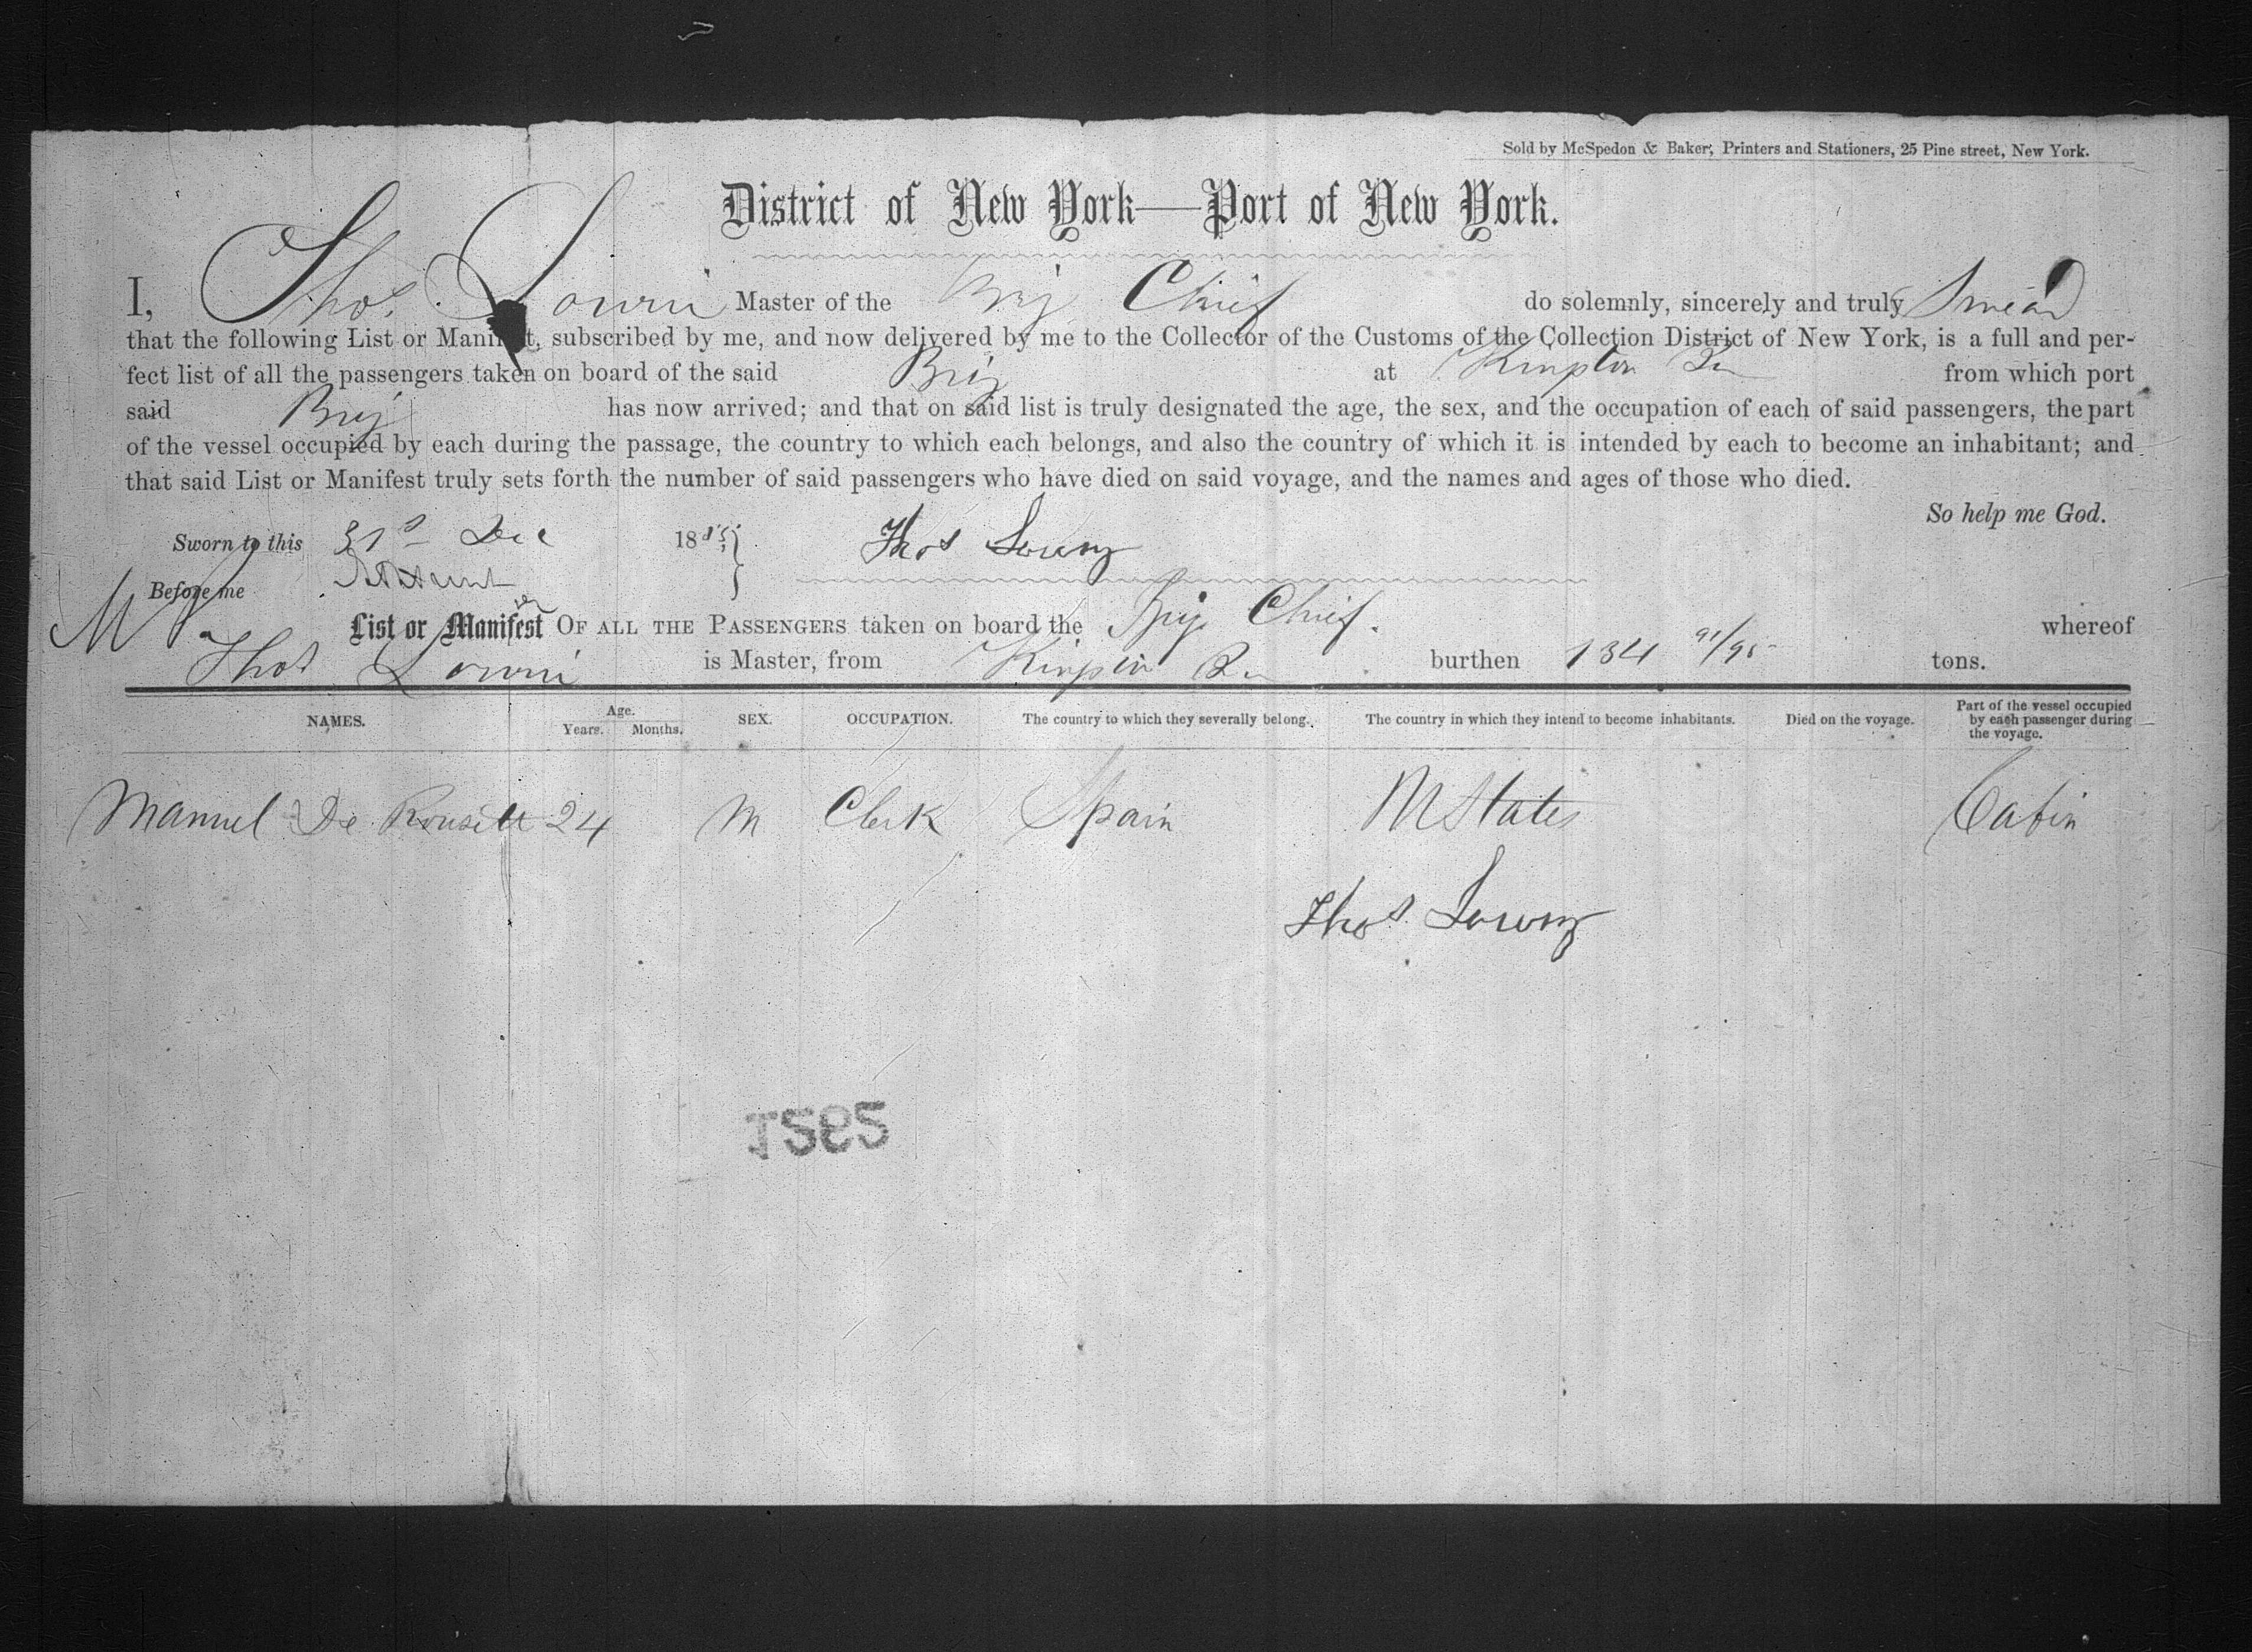 Sold by McSpedon & Baker, Printers and Stationers, 25 Pine street, New York.
District of New York—Port of New York.
I, Thos. Master of the Brig Chief do solemnly, sincerely and truly Swear
that the following List or Manifest, subscribed by me, and now delivered by me to the Collector of the Customs of the Collection District of New York, is a full and per-
fect list of all the passengers taken on board of the said Brig at from which port
said Brig has now arrived; and that on said list is truly designated the age, the sex, and the occupation of each of said passengers, the part
of the vessel occupied by each during the passage, the country to which each belongs, and also the country of which it is intended by each to become an inhabitant; and
that said List or Manifest truly sets forth the number of said passengers who have died on said voyage, and the names and ages of those who died.
So help me God.
Sworn to this 31st Dec 18 Thos
Before me
List or Manifest OF ALL THE PASSENGERS taken on board the Brig Chief. whereof
Thos is Master, from burthen 134 91/95 tons.
NAMES. Age. Years. Months. SEX. OCCUPATION. The country to which they severally belong. The country in which they intend to become inhabitants. Died on the voyage. Part of the vessel occupied by each passenger during the voyage.
Manuel De 24 M Clerk Spain States Cabin
Thos.